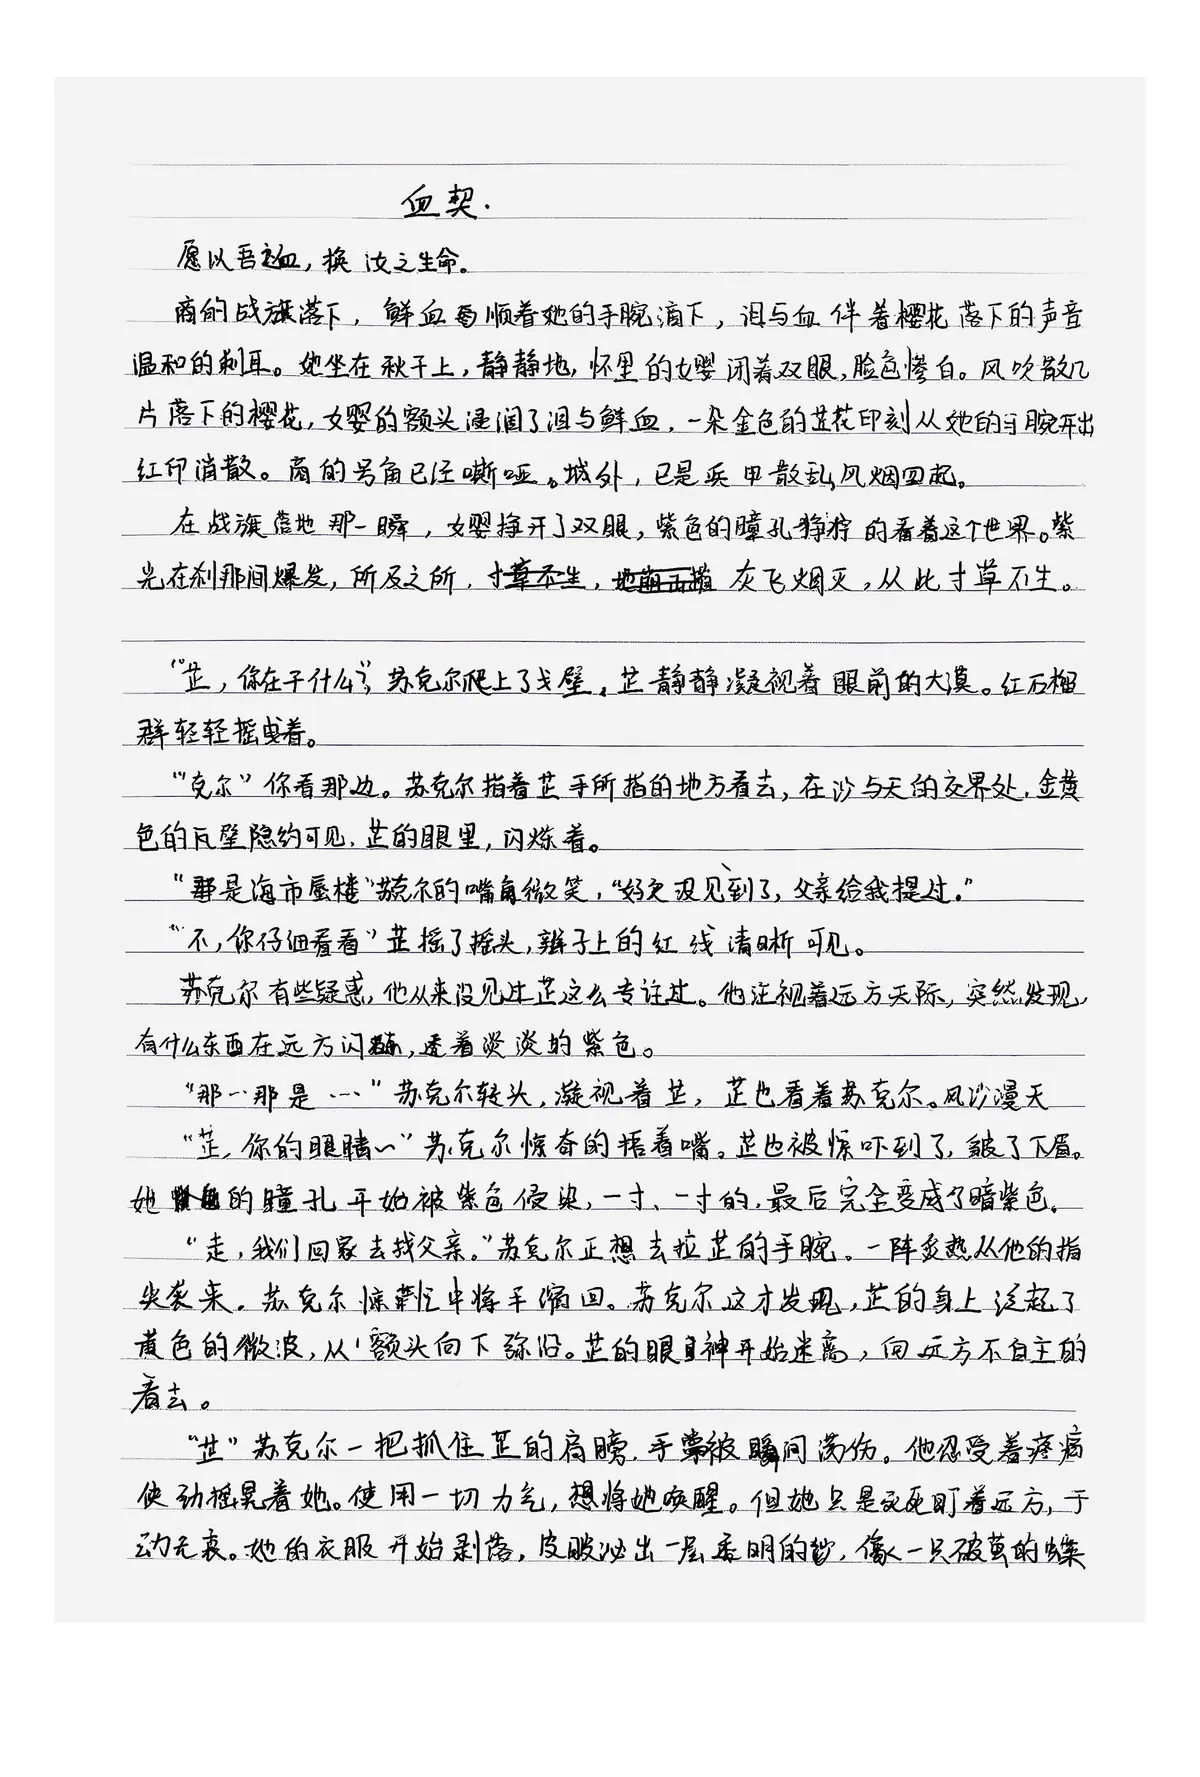 血契.
愿以吾之血，换汝之生命。
商的战旗落下，鲜血顺着她的手腕滴下，泪与血伴着樱花落下的声音
温和的刺耳。她坐在秋千上，静静地，怀里的女婴闭着双眼，脸色惨白。风吹散几
片落下的樱花，女婴的额头浸润了泪与鲜血，一朵金色的芷花印刻从她的手腕开出
红印消散。商的号角已经嘶哑。城外，已是兵甲散乱，风烟四起。
在战旗落地那一瞬，女婴挣开了双眼，紫色的瞳孔狰狞的看着这个世界。紫
光在刹那间爆发，所及之所，灰飞烟灭，从此寸草不生。
“芷，你在干什么”，苏克尔爬上了戈壁。芷静静凝视着眼前的大漠。红石榴
群轻轻摇曳着。
“克尔”你看那边。苏克尔指着芷手所指的地方看去，在沙与天的交界处，金黄
色的瓦壁隐约可见，芷的眼里，闪烁着。
“那是海市蜃楼”苏克尔的嘴角微笑，“好久没见到了，父亲给我提过。”
“不，你仔细看看”芷摇了摇头，辫子上的红线清晰可见。
苏克尔有些疑惑，他从来没见过芷这么专注过。他注视着远方天际，突然发现，
有什么东西在远方闪烁，透着淡淡的紫色。
“那…那是…”苏克尔转头，凝视着芷，芷也看着苏克尔。风沙漫天
“芷，你的眼睛~”苏克尔惊奇的捂着嘴。芷也被惊吓到了，皱了下眉。
她的瞳孔开始被紫色侵染，一寸、一寸的，最后完全变成了暗紫色。
“走，我们回家去找父亲。”苏克尔正想去拉芷的手腕。一阵炙热从他的指
尖袭来。苏克尔惊慌中将手缩回。苏克尔这才发现，芷的身上泛起了
黄色的微波，从额头向下弥沿。芷的眼神开始迷离，向远方不自主的
看去。
“芷”苏克尔一把抓住芷的肩膀，手掌被瞬间烫伤。他忍受着疼痛
使劲摇晃着她。使用一切力气，想将她唤醒。但她只是死死盯着远方，于
动无衷。她的衣服开始剥落，皮肤泌出一层透明的纱，像一只破茧的蝶